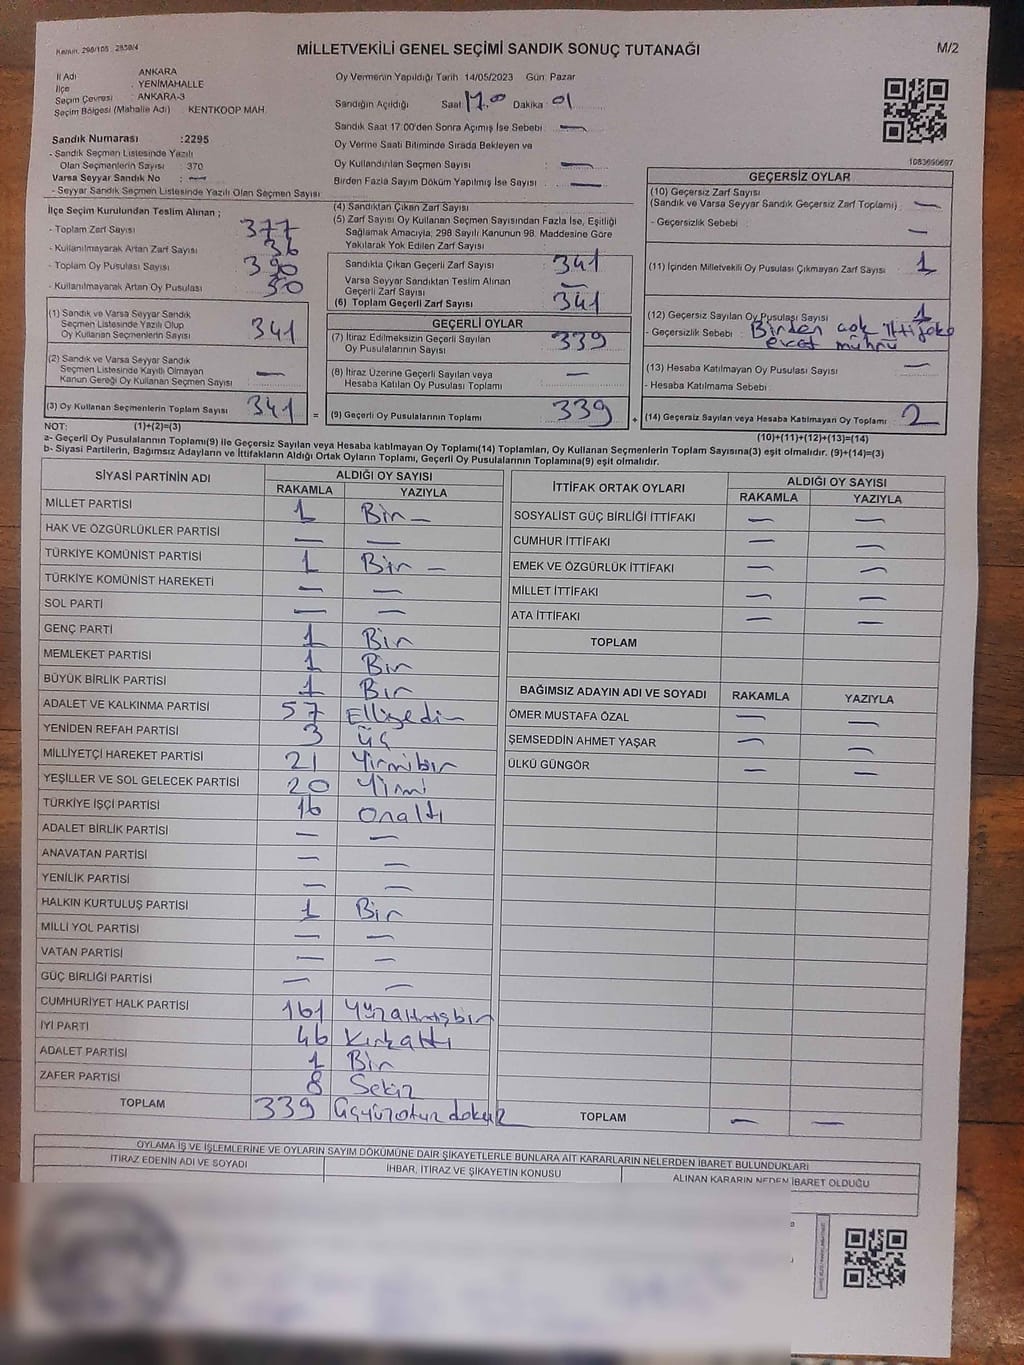 Kanun, 298/105 : 2839/4
MİLLETVEKİLİ GENEL SEÇİMİ SANDIK SONUÇ TUTANAĞI
M/2
İl Adı : ANKARA
İlçe : YENİMAHALLE
Seçim Çevresi : ANKARA-3
Seçim Bölgesi (Mahalle Adı) : KENTKOOP MAH.
Sandık Numarası :2295
- Sandık Seçmen Listesinde Yazılı
Olan Seçmenlerin Sayısı : 370
Varsa Seyyar Sandık No : —
- Seyyar Sandık Seçmen Listesinde Yazılı Olan Seçmen Sayısı
Oy Vermenin Yapıldığı Tarih 14/05/2023 Gün: Pazar
Sandığın Açıldığı Saat 17.00 Dakika 01
Sandık Saat 17:00'den Sonra Açımış İse Sebebi : —
Oy Verme Saati Bitiminde Sırada Bekleyen ve
Oy Kullandırılan Seçmen Sayısı : —
Birden Fazla Sayım Döküm Yapılmış İse Sayısı : —
1083690697
İlçe Seçim Kurulundan Teslim Alınan ;
- Toplam Zarf Sayısı : 377
- Kullanılmayarak Artan Zarf Sayısı : 36
- Toplam Oy Pusulası Sayısı : 390
- Kullanılmayarak Artan Oy Pusulası : 50
(1) Sandık ve Varsa Seyyar Sandık
Seçmen Listesinde Yazılı Olup
Oy Kullanan Seçmen Sayısı : 341
(2) Sandık ve Varsa Seyyar Sandık
Seçmen Listesinde Kayıtlı Olmayan
Kanun Gereği Oy Kullanan Seçmen Sayısı : —
(3) Oy Kullanan Seçmenlerin Toplam Sayısı 341 =
(4) Sandıktan Çıkan Zarf Sayısı :
(5) Zarf Sayısı Oy Kullanan Seçmen Sayısından Fazla İse, Eşitliği
Sağlamak Amacıyla, 298 Sayılı Kanunun 98. Maddesine Göre
Yakılarak Yok Edilen Zarf Sayısı :
Sandıkta Çıkan Geçerli Zarf Sayısı : 341
Varsa Seyyar Sandıktan Teslim Alınan
Geçerli Zarf Sayısı : —
(6) Toplam Geçerli Zarf Sayısı : 341
GEÇERLİ OYLAR
(7) İtiraz Edilmeksizin Geçerli Sayılan
Oy Pusulalarının Sayısı : 339
(8) İtiraz Üzerine Geçerli Sayılan veya
Hesaba Katılan Oy Pusulası Toplamı : —
(9) Geçerli Oy Pusulalarının Toplamı : 339 +
GEÇERSİZ OYLAR
(10) Geçersiz Zarf Sayısı
(Sandık ve Varsa Seyyar Sandık Geçersiz Zarf Toplamı) : —
- Geçersizlik Sebebi : —
(11) İçinden Milletvekili Oy Pusulası Çıkmayan Zarf Sayısı : 1
(12) Geçersiz Sayılan Oy Pusulası Sayısı : 1
- Geçersizlik Sebebi : Birden çok ittifaka
evet mührü
(13) Hesaba Katılmayan Oy Pusulası Sayısı : —
- Hesaba Katılmama Sebebi :
(14) Geçersiz Sayılan veya Hesaba Katılmayan Oy Toplamı : 2
NOT: (1)+(2)=(3)
(10)+(11)+(12)+(13)=(14)
a- Geçerli Oy Pusulalarının Toplamı(9) ile Geçersiz Sayılan veya Hesaba katılmayan Oy Toplamı(14) Toplamları, Oy Kullanan Seçmenlerin Toplam Sayısına(3) eşit olmalıdır. (9)+(14)=(3)
b- Siyasi Partilerin, Bağımsız Adayların ve İttifakların Aldığı Ortak Oyların Toplamı, Geçerli Oy Pusulalarının Toplamına(9) eşit olmalıdır.
SİYASİ PARTİNİN ADI ALDIĞI OY SAYISI
RAKAMLA YAZIYLA
MİLLET PARTİSİ 1 Bir —
HAK VE ÖZGÜRLÜKLER PARTİSİ — —
TÜRKİYE KOMÜNİST PARTİSİ 1 Bir —
TÜRKİYE KOMÜNİST HAREKETİ — —
SOL PARTİ — —
GENÇ PARTİ 1 Bir
MEMLEKET PARTİSİ 1 Bir
BÜYÜK BİRLİK PARTİSİ 1 Bir
ADALET VE KALKINMA PARTİSİ 57 Elliyedi
YENİDEN REFAH PARTİSİ 3 üç
MİLLİYETÇİ HAREKET PARTİSİ 21 Yirmibir
YEŞİLLER VE SOL GELECEK PARTİSİ 20 Yirmi
TÜRKİYE İŞÇİ PARTİSİ 16 Onaltı
ADALET BİRLİK PARTİSİ — —
ANAVATAN PARTİSİ — —
YENİLİK PARTİSİ — —
HALKIN KURTULUŞ PARTİSİ 1 Bir
MİLLİ YOL PARTİSİ — —
VATAN PARTİSİ — —
GÜÇ BİRLİĞİ PARTİSİ — —
CUMHURİYET HALK PARTİSİ 161 Yüzaltmışbir
İYİ PARTİ 46 Kırkaltı
ADALET PARTİSİ 1 Bir
ZAFER PARTİSİ 8 Sekiz
TOPLAM 339 Üçyüzotuzdokuz
İTTİFAK ORTAK OYLARI ALDIĞI OY SAYISI
RAKAMLA YAZIYLA
SOSYALİST GÜÇ BİRLİĞİ İTTİFAKI — —
CUMHUR İTTİFAKI — —
EMEK VE ÖZGÜRLÜK İTTİFAKI — —
MİLLET İTTİFAKI — —
ATA İTTİFAKI — —
TOPLAM
BAĞIMSIZ ADAYIN ADI VE SOYADI RAKAMLA YAZIYLA
ÖMER MUSTAFA ÖZAL — —
ŞEMSEDDİN AHMET YAŞAR — —
ÜLKÜ GÜNGÖR — —
TOPLAM — —
OYLAMA İŞ VE İŞLEMLERİNE VE OYLARIN SAYIM DÖKÜMÜNE DAİR ŞİKAYETLERLE BUNLARA AİT KARARLARIN NELERDEN İBARET BULUNDUKLARI
İTİRAZ EDENİN ADI VE SOYADI İHBAR, İTİRAZ VE ŞİKAYETİN KONUSU ALINAN KARARIN NEDEN İBARET OLDUĞU